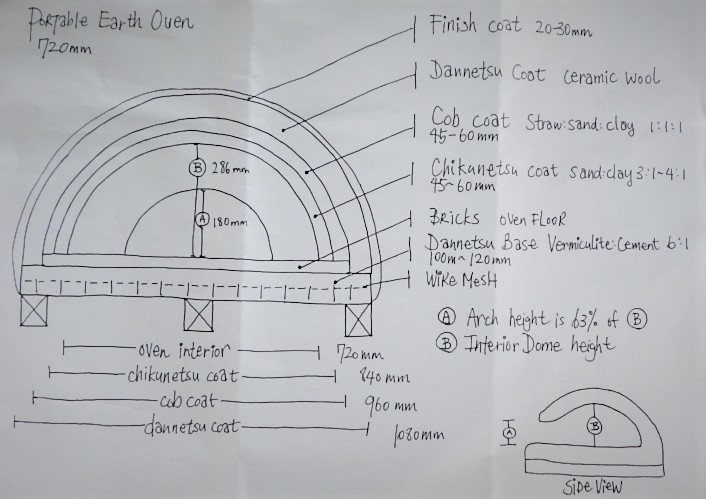 Portable Earth Oven
720mm
Finish coat 20-30mm
Dannetsu Coat ceramic wool
Cob coat Straw:sand:clay 1:1:1
45-60mm
Chikunetsu coat sand:clay 3:1~4:1
45~60mm
Bricks oven FLOOR
Dannetsu Base Vermiculite:Cement 6:1
100m~120mm
Wire Mesh
B 286mm
A 180mm
A Arch height is 63% of B
B Interior Dome height
oven interior 720mm
chikunetsu coat 840mm
cob coat 960mm
dannetsu coat 1080mm
A
B
Side View